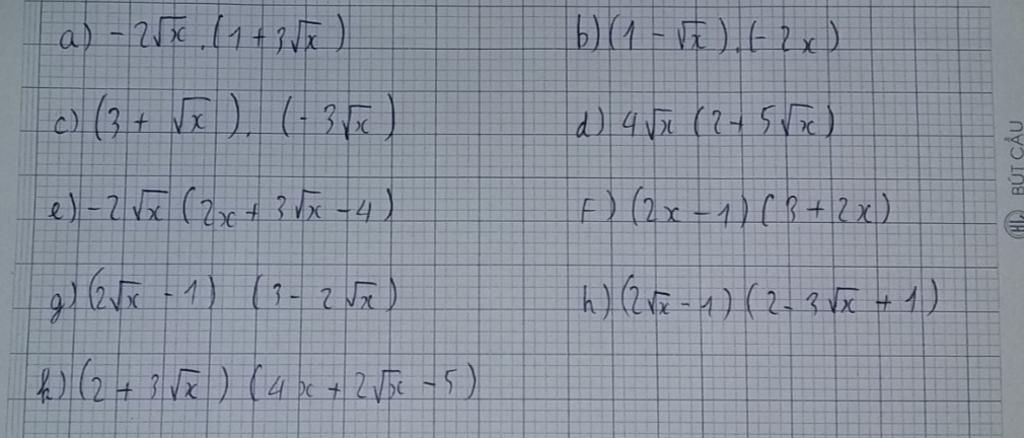 a) -2√x . (1 + 3√x)
b) (1 - √x) . (-2x)
c) (3 + √x) . (-3√x)
d) 4√x (2 + 5√x)
e) -2√x (2x + 3√x - 4)
F) (2x - 1) (3 + 2x)
g) (2√x - 1) (3 - 2√x)
h) (2√x - 1) (2 - 3√x + 1)
k) (2 + 3√x) (4x + 2√x - 5)
HL BÚT CẦU